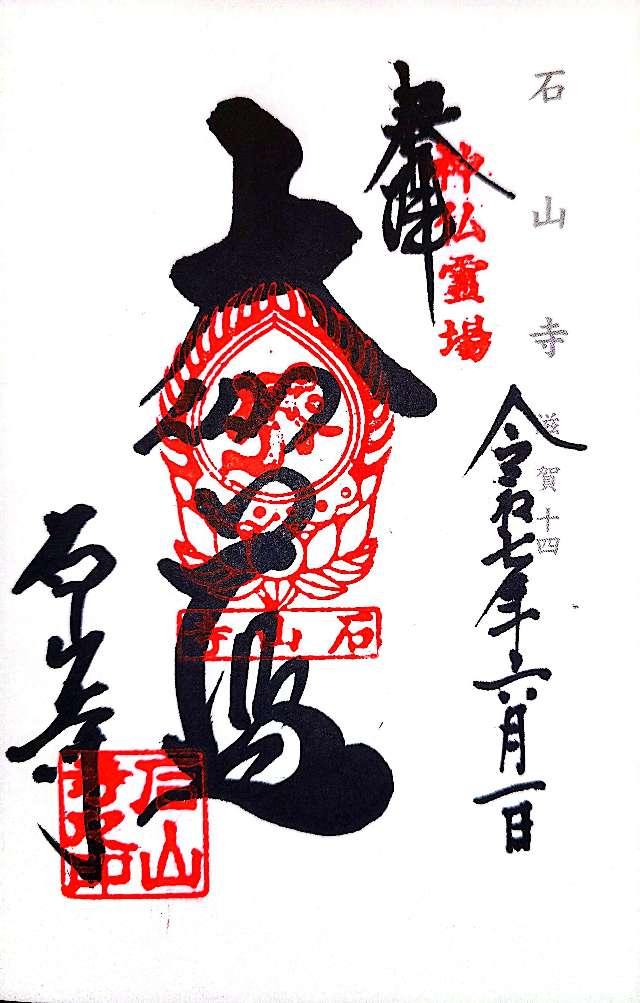 石山寺
滋賀十四
奉拝
神仏霊場
令和七年六月一日
大伽藍
石山寺
石山寺
石山寺印